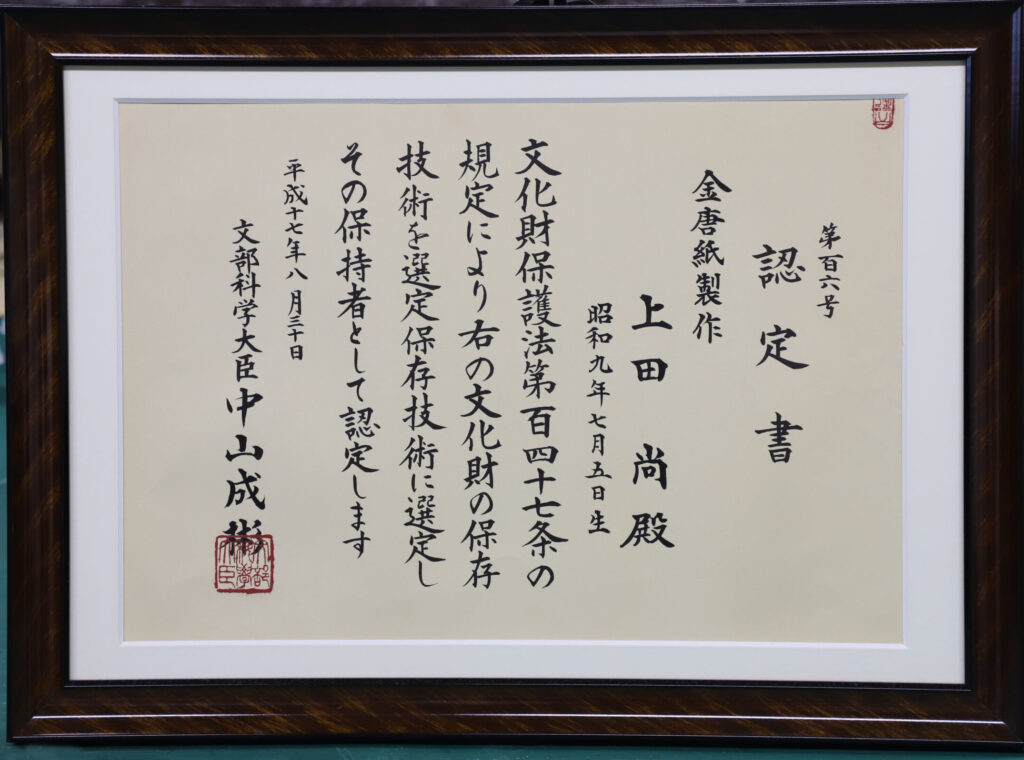 第百六号
認定書
金唐紙製作
上田 尚殿
昭和九年七月五日生
文化財保護法第百四十七条の
規定により右の文化財の保存
技術を選定保存技術に選定し
その保持者として認定します
平成十七年八月三十日
文部科学大臣 中山成彬
文部科学大臣